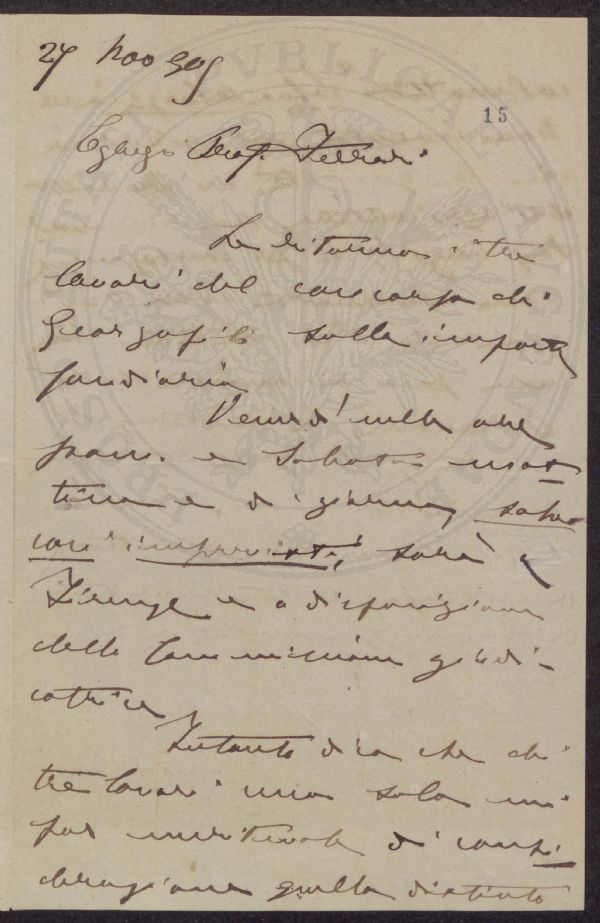 27 Nov 905
15
Egregio Prof. Ferrari
Le ritorno i tre
lavori del concorso di
Georgofili sulla imposta
fondiaria
Venerdì nelle ore
pom. e Sabato mat
tina e di giorno, salvo
casi imprevisti, sarò a
Firenze e a disposizione
della Commissione giudi-
catrice
Intanto dico che di
tre lavori uno solo mi
par meritevole di consi
derazione quello distinto